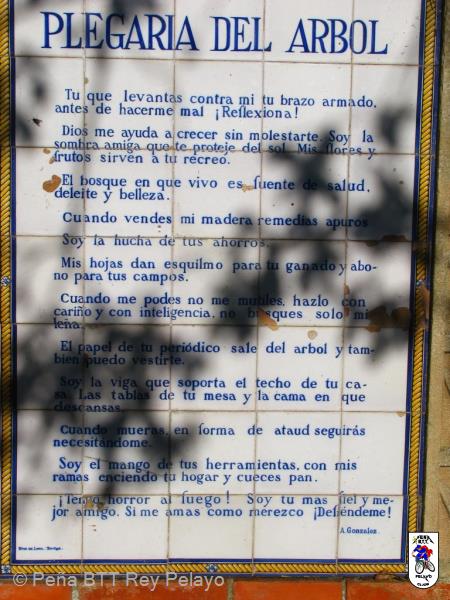 PLEGARIA DEL ARBOL
Tu que levantas contra mi tu brazo armado,
antes de hacerme mal ¡Reflexiona!
Dios me ayuda a crecer sin molestarte. Soy la
sombra amiga que te proteje del sol. Mis flores y
frutos sirven a tu recreo.
El bosque en que vivo es fuente de salud,
deleite y belleza.
Cuando vendes mi madera remedias apuros
Soy la hucha de tus ahorros.
Mis hojas dan esquilmo para tu ganado y abo-
no para tus campos.
Cuando me podes no me mutiles, hazlo con
cariño y con inteligencia, no busques solo mi
leña.
El papel de tu periódico sale del arbol y tam-
bien puedo vestirte.
Soy la viga que soporta el techo de tu ca-
sa. Las tablas de tu mesa y la cama en que
descansas.
Cuando mueras, en forma de ataud seguirás
necesitándome.
Soy el mango de tus herramientas, con mis
ramas enciendo tu hogar y cueces pan.
¡Tengo horror al fuego! Soy tu mas fiel y me-
jor amigo. Si me amas como merezco ¡Defiéndeme!
A. Gonzalez.
© Peña BTT Rey Pelayo
PEÑA
B.T.T.
PELAYO